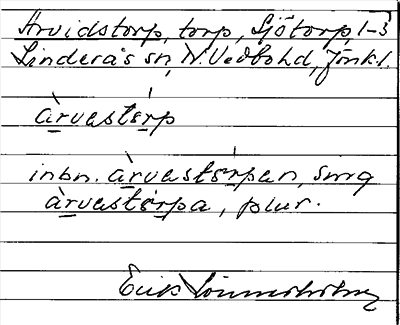 Arvidstorp, torp, Sjötorp 1-3
Linderås sn, N. Vedbohd, Jönk l.
àrvastórp
inbn. àrvastórpan, sing
àrvastórpa, plur.
Erik